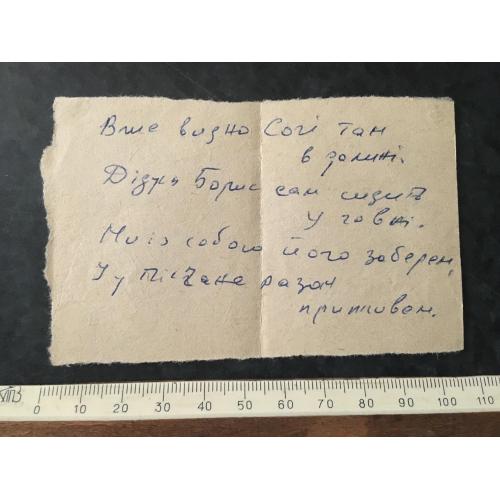 Вже видно Сочі там
в долині.
Дідусь Борис сам сидить
у говні.
Ми із собою його заберем,
І у Піщане разом
припливем.
0 10 20 30 40 50 60 70 80 90 100 110